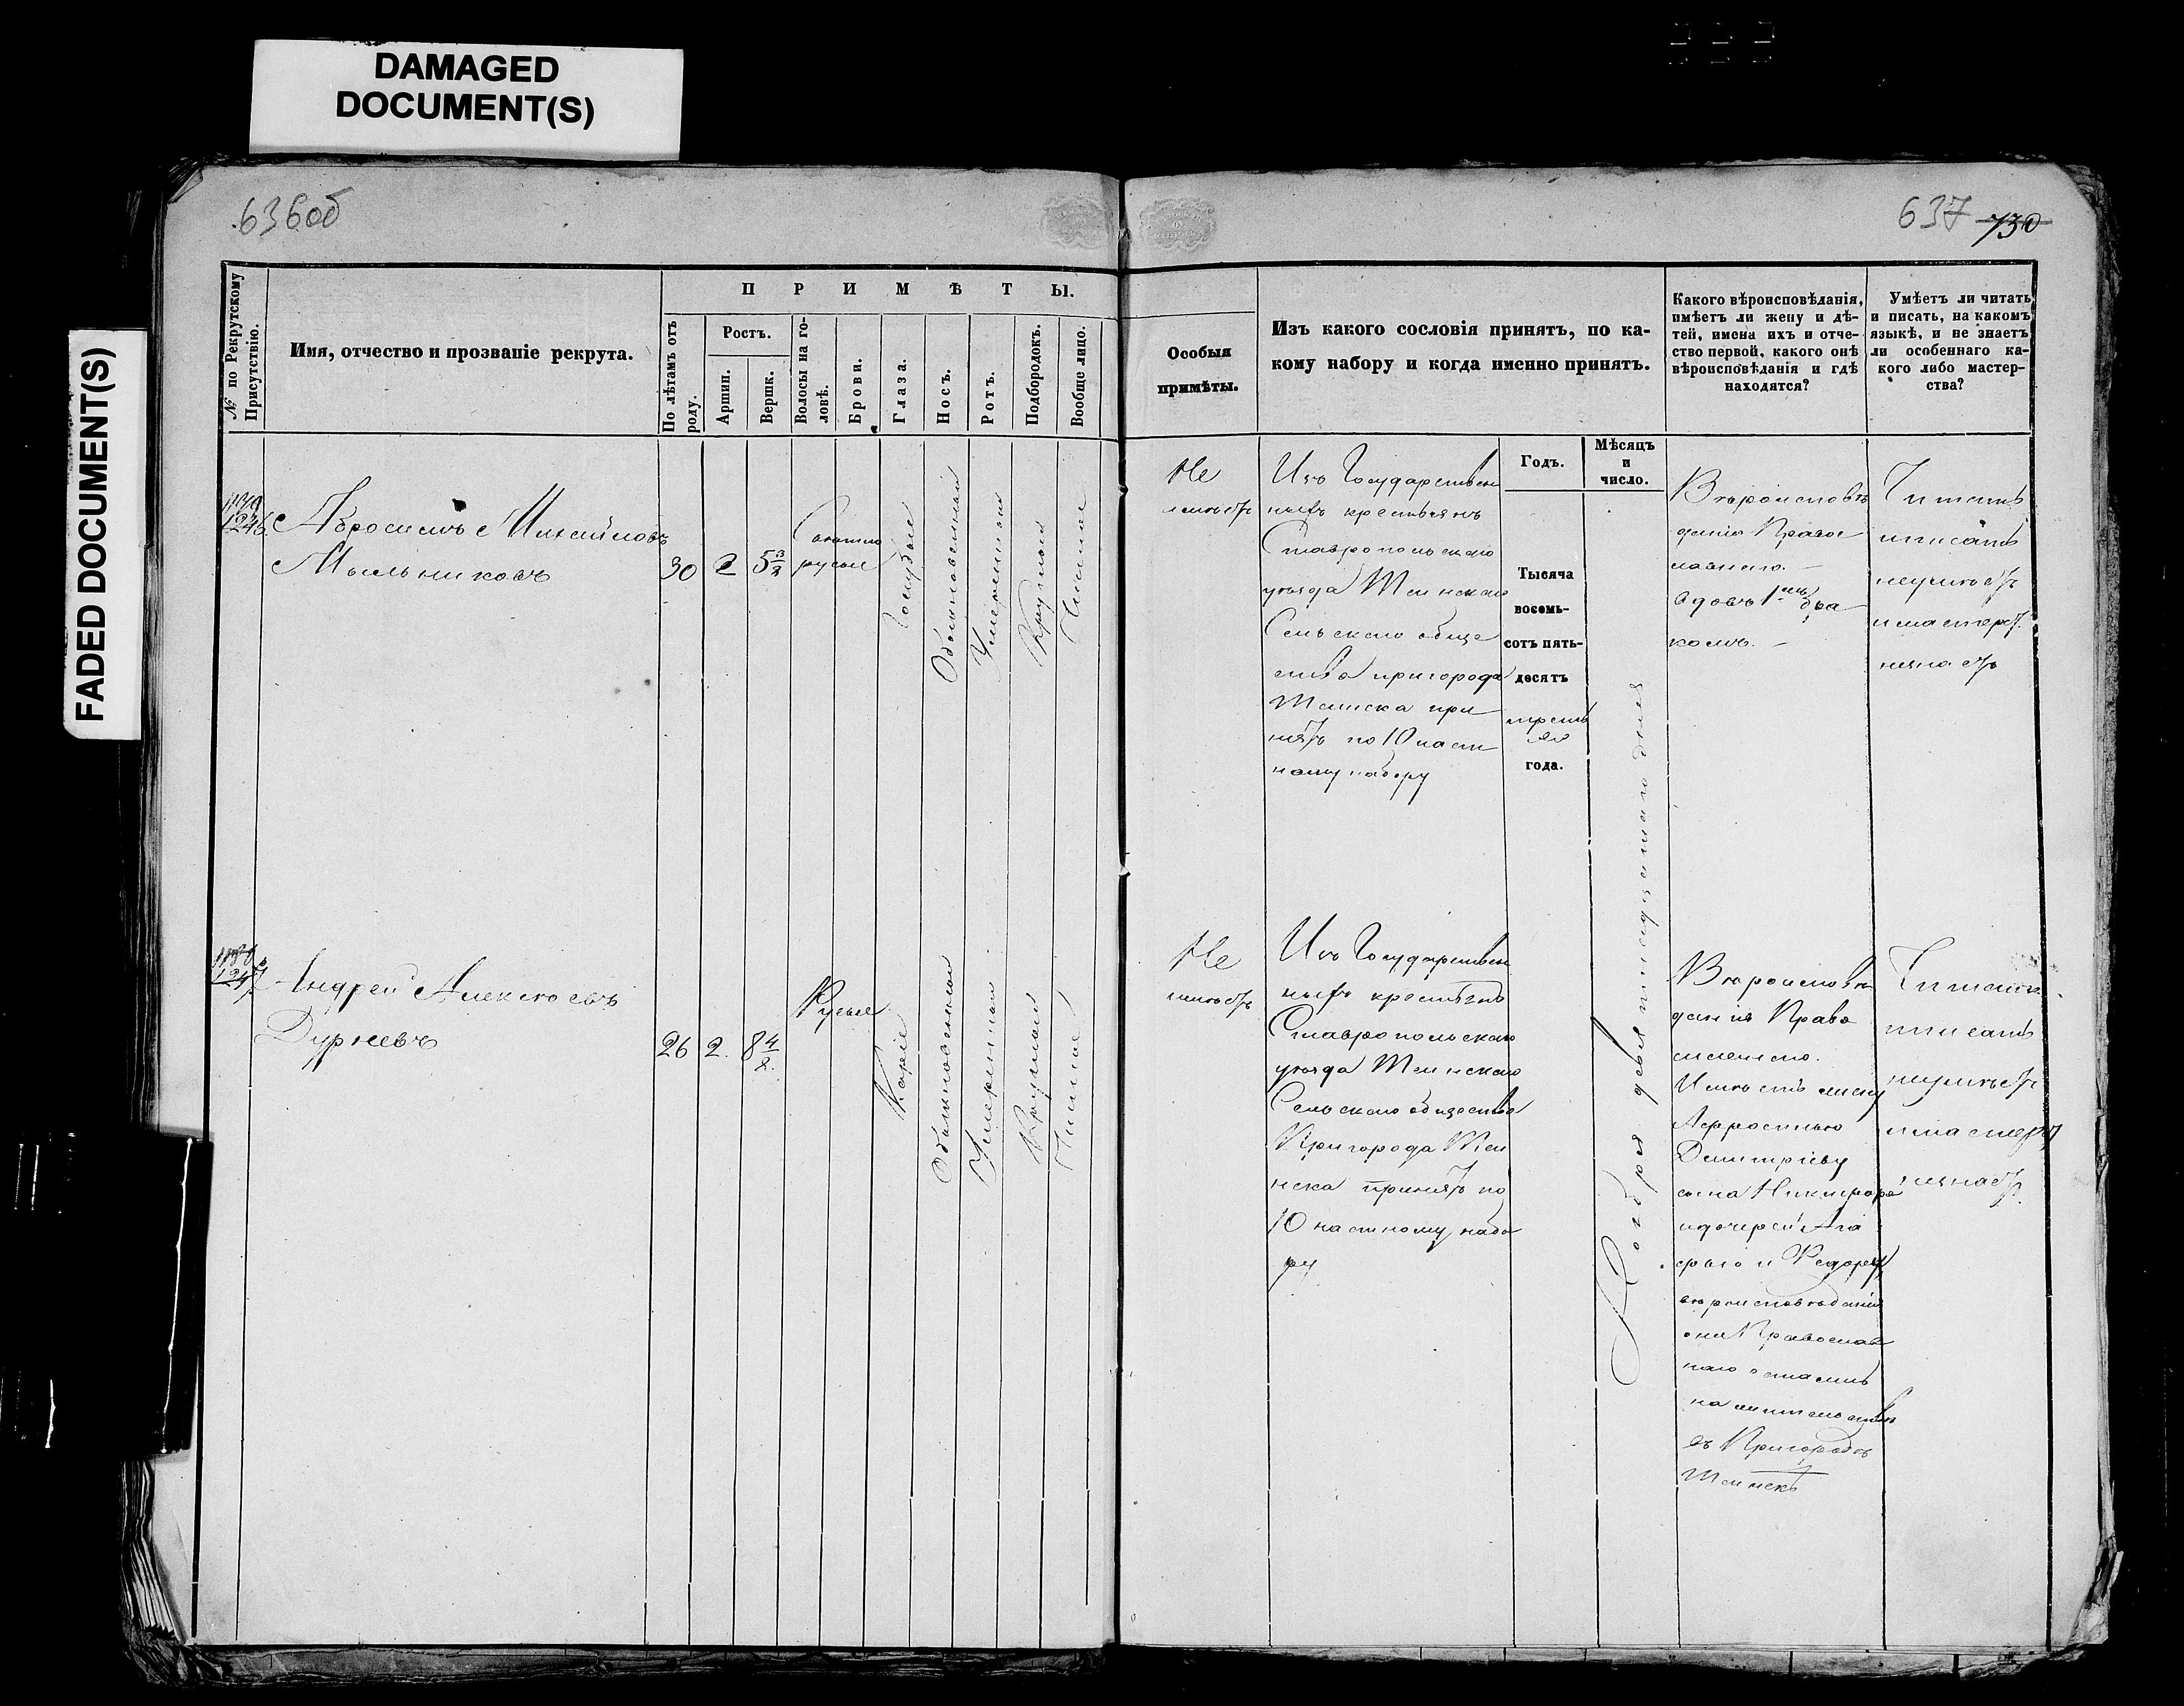 DAMAGED
DOCUMENT(S)
FADED DOCUMENT(S)
636об
637 730
№ по Рекрутскому
Присутствію.
Имя, отчество и прозваніе рекрута.
П Р И М Ѣ Т Ы.
По лѣтамъ отъ
роду.
Ростъ.
Аршин.
Вершк.
Волосы на го-
ловѣ.
Брови.
Глаза.
Носъ.
Ротъ.
Подбородокъ.
Вообще лицо.
Особыя
примѣты.
Изъ какого сословія принятъ, по ка-
кому набору и когда именно принятъ.
Какого вѣроисповѣданія,
имѣетъ ли жену и дѣ-
тей, имена ихъ и отче-
ство первой, какого онѣ
вѣроисповѣданія и гдѣ
находятся?
Умѣетъ ли читать
и писать, на какомъ
языкѣ, и не знаетъ
ли особеннаго ка-
кого либо мастер-
ства?
Годъ.
Мѣсяцъ
и
число.
1246.
Абросимъ Михайловъ
Мыльниковъ
30
2
5 3/8
Свѣтло
русые
Голубые
Обыкновенный
Умеренный
Круглый
Чистое
Не
имѣетъ
Изъ Государствен
ныхъ крестьянъ
Ставропольскаго
уѣзда Тіинскаго
Сельскаго обще
ства пригорода
Тіинска при
нятъ по 10 част
ному набору
Тысяча
восемь-
сотъ пять-
десятъ
третья
го
года.
Ноября девятнадцатаго дня
Вѣроисповѣ
данія Право
славнаго.
вдовъ 1мъ бра
комъ.
Читать
и писать
неумѣетъ
и мастерст.
незнаетъ
1247
Андрей Алексѣевъ
Дурневъ
26
2.
8 4/8.
Русые
Каріе
Обыкновенный
Умеренный
Круглый
Чистое
Не
имѣетъ
Изъ Государствен
ныхъ крестьянъ
Ставропольскаго
уѣзда Тіинскаго
Сельскаго общества
Пригорода Тіи
нска принятъ по
10 частному набо
ру
Вѣроисповѣ
данія Право
славнаго.
Имѣетъ жену
Афросинью
Дмитріеву
сына Никифора
и дочерей Ага
фью и Федору
вѣроисповѣданія
они Православ
наго остались
на жительствѣ
въ Пригородѣ
Тіинскѣ
Читать
и писать
неумѣетъ
и мастерст
незнаетъ.